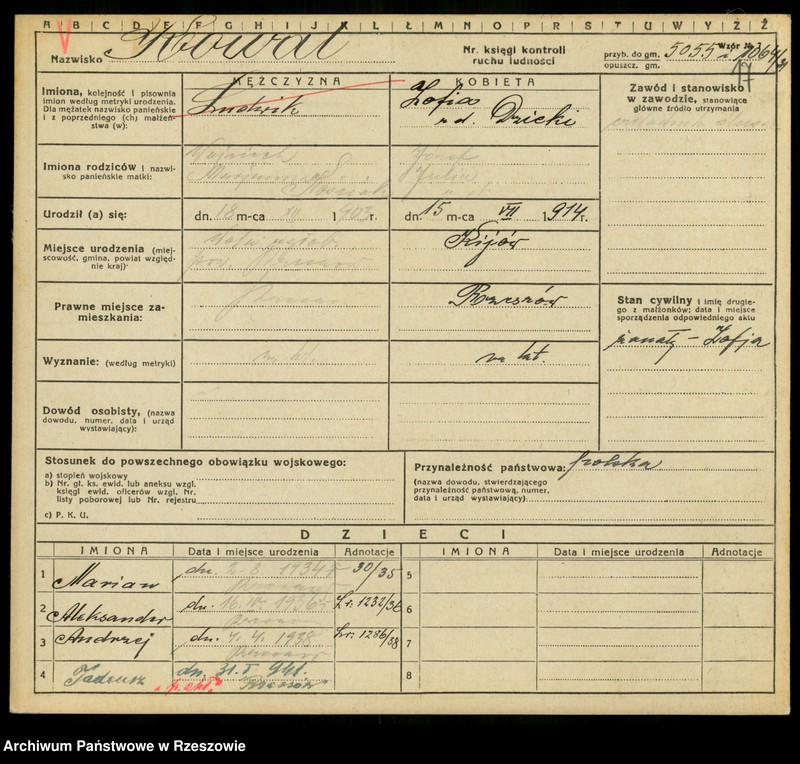 A B C D E F G H I J K L Ł M N O P R S T U W Y Z Ż
Nazwisko Kowal
Nr. księgi kontroli ruchu ludności
przyb. do gm. 5055
opuszcz. gm.
Wzór Nr.
17
MĘŻCZYZNA KOBIETA
Imiona, kolejność i pisownia imion według metryki urodzenia. Dla mężatek nazwisko panieńskie i z poprzedniego (ch) małżeństwa (w):
Ludwik
Zofia
rd. Dzicki
Zawód i stanowisko w zawodzie, stanowiące główne źródło utrzymania
Imiona rodziców i nazwisko panieńskie matki:
Wojciech
Marjanna
Józef
Julia
Urodził (a) się:
dn. 18 m-ca XII 1903 r.
dn. 15 m-ca VII 1914 r.
Miejsce urodzenia (miejscowość, gmina, powiat względnie kraj)
Kijów
Prawne miejsce zamieszkania:
Rzeszów
Stan cywilny i imię drugiego z małżonków; data i miejsce sporządzenia odpowiedniego aktu
żonaty – Zofja
Wyznanie: (według metryki)
rz. kat.
rz. kat.
Dowód osobisty, (nazwa dowodu, numer, data i urząd wystawiający):
Stosunek do powszechnego obowiązku wojskowego:
a) stopień wojskowy
b) Nr. gł. ks. ewid. lub aneksu wzgl. księgi ewid. oficerów wzgl. Nr. listy poborowej lub Nr. rejestru
c) P. K. U.
Przynależność państwowa: polska
(nazwa dowodu, stwierdzającego przynależność państwową, numer, data i urząd wystawiający)
DZIECI
IMIONA Data i miejsce urodzenia Adnotacje IMIONA Data i miejsce urodzenia Adnotacje
1 Marian dn. 2. 8. 1934 30/35 5
2 Aleksander dn. 16. IV. 1936 Lr: 1232/36 6
3 Andrzej dn. 4. 4. 1938 Lr: 1286/38 7
4 Tadeusz dn. 31. I. 941. Rzeszów 8
Archiwum Państwowe w Rzeszowie